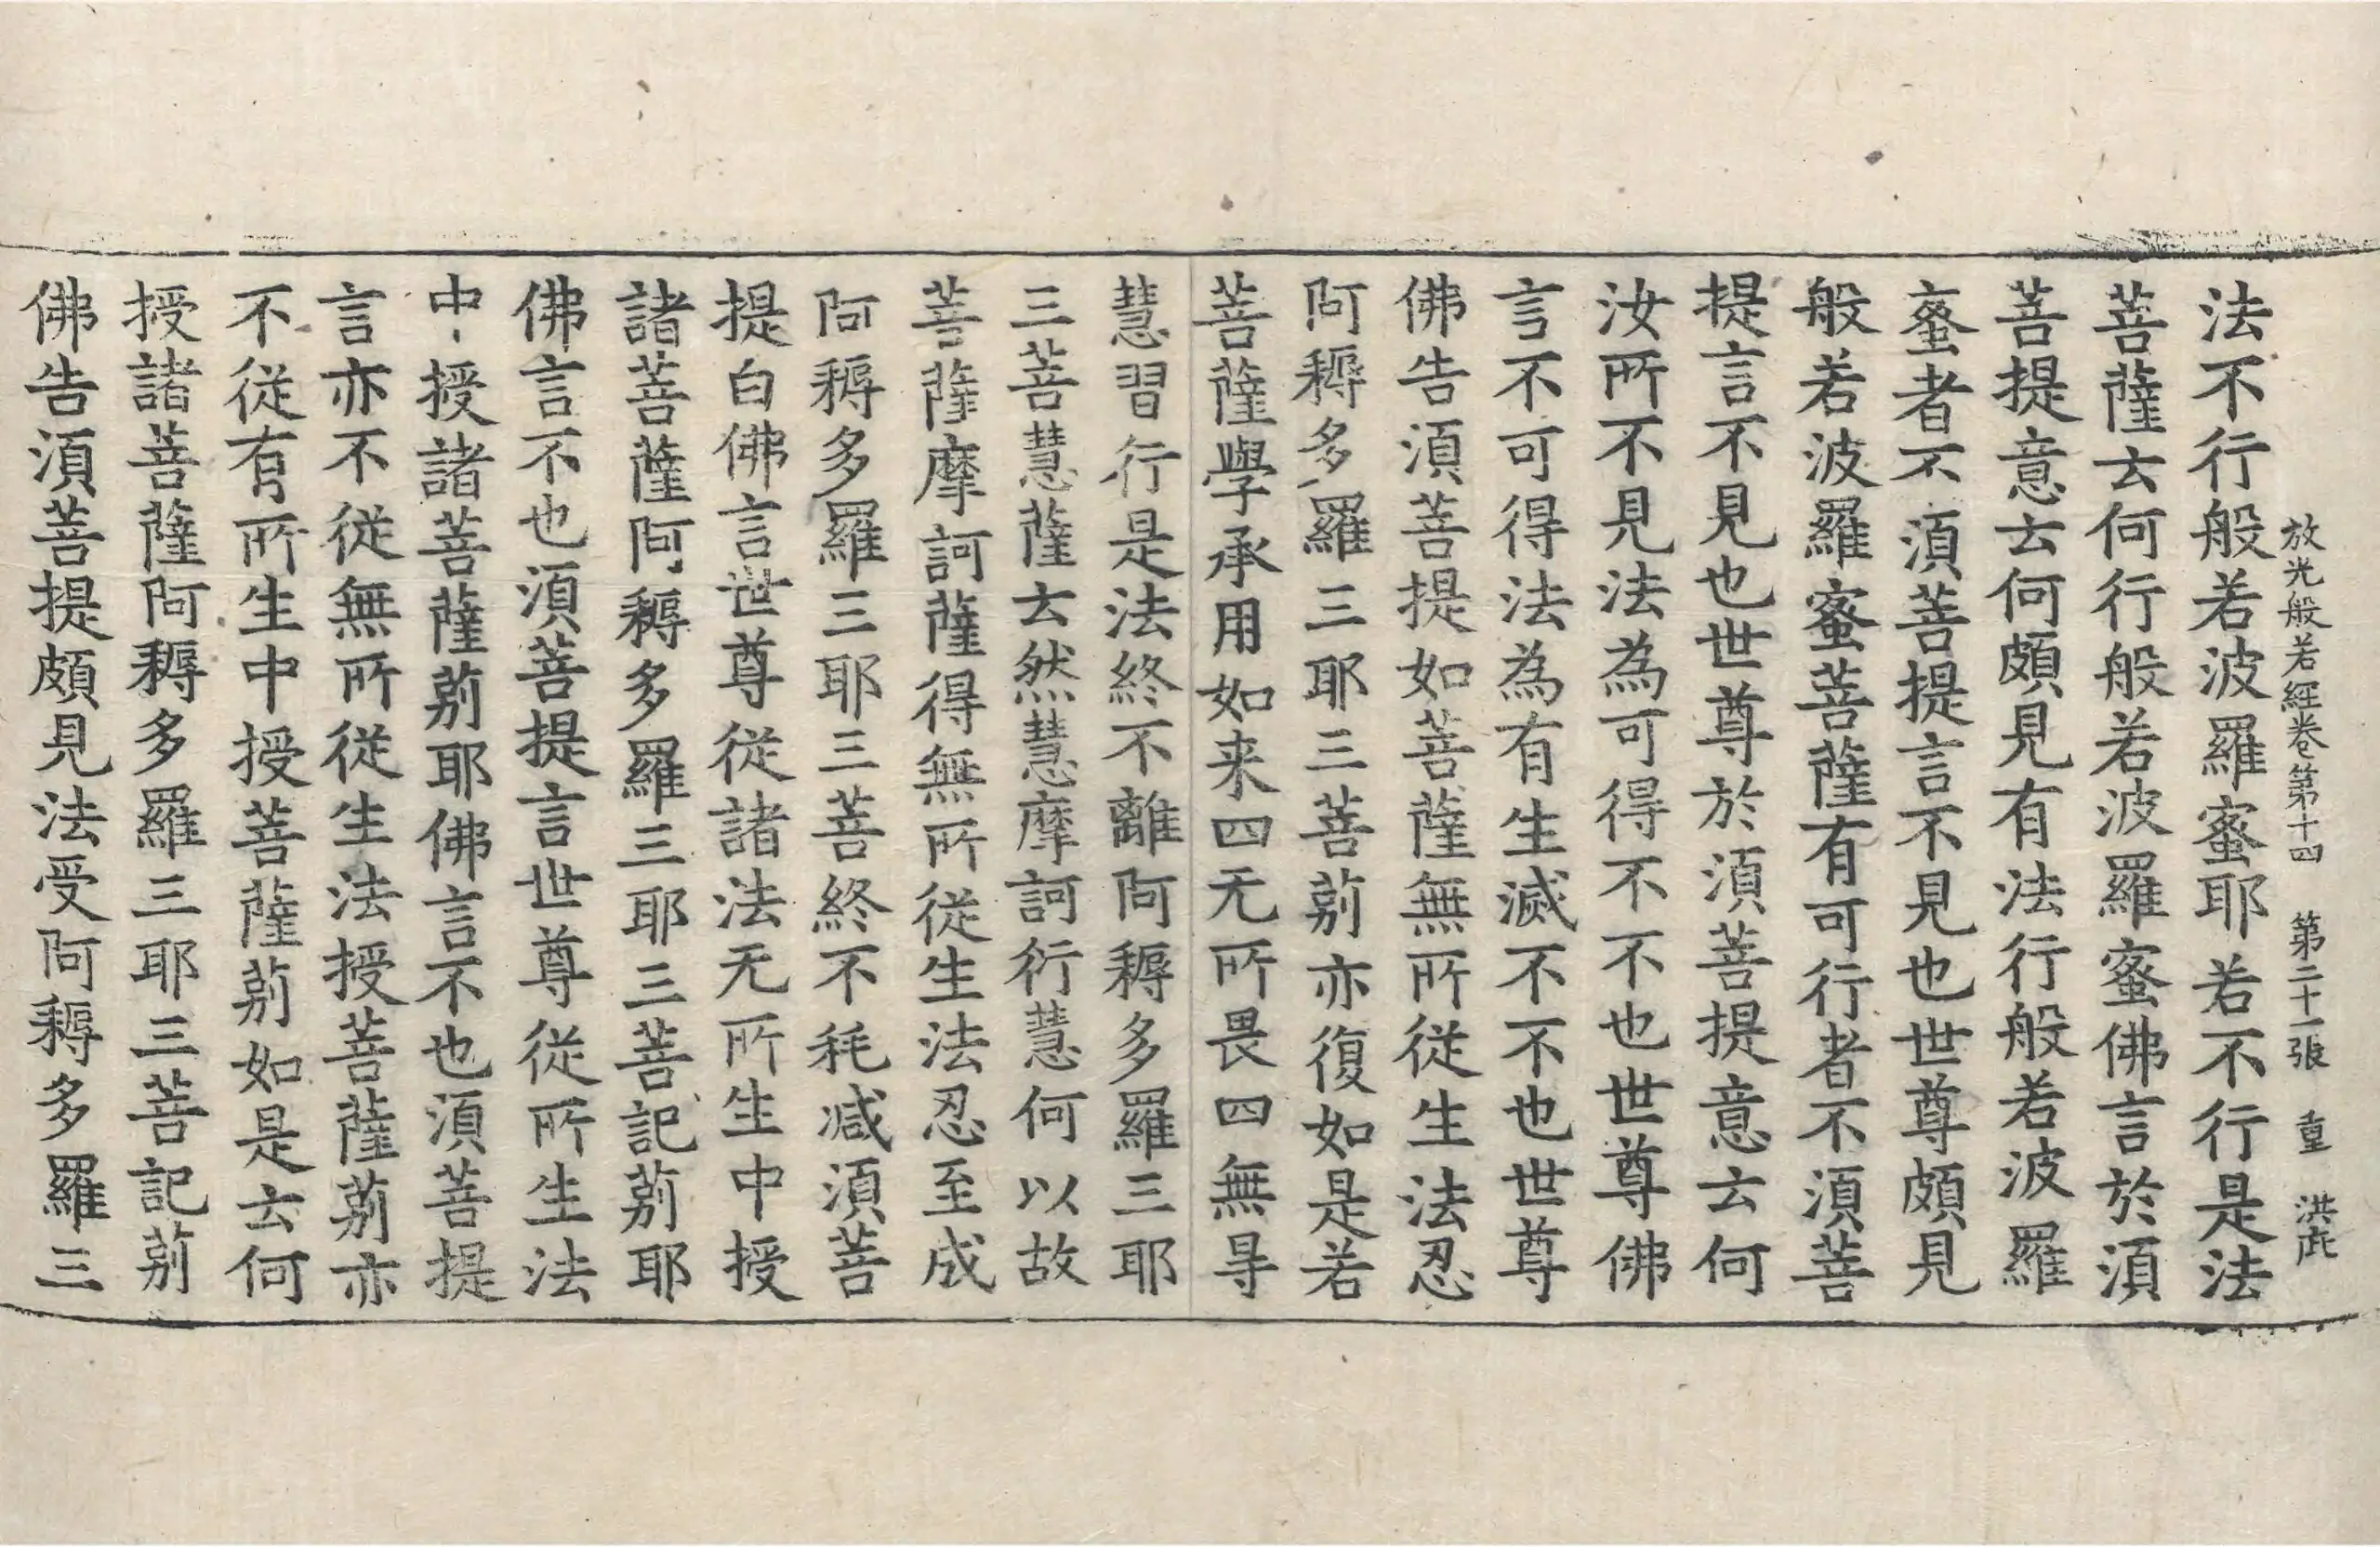 放光般若經卷第十四　第二十一張　重　洪
法不行般若波羅蜜耶若不行是法
菩薩云何行般若波羅蜜佛言於須
菩提意云何頗見有法行般若波羅
蜜者不須菩提言不見也世尊頗見
般若波羅蜜菩薩有可行者不須菩
提言不見也世尊於須菩提意云何
汝所不見法為可得不不也世尊佛
言不可得法為有生滅不不也世尊
佛告須菩提如菩薩無所從生法忍
阿耨多羅三耶三菩莂亦復如是若
菩薩學承用如来四无所畏四無㝵
慧習行是法終不離阿耨多羅三耶
三菩慧薩云然慧摩訶衍慧何以故
菩薩摩訶薩得無所從生法忍至成
阿耨多羅三耶三菩終不秏减須菩
提白佛言世尊從諸法无所生中授
諸菩薩阿耨多羅三耶三菩記莂耶
佛言不也須菩提言世尊從所生法
中授諸菩薩莂耶佛言不也須菩提
言亦不從無所從生法授菩薩莂亦
不從有所生中授菩薩莂如是云何
授諸菩薩阿耨多羅三耶三菩記莂
佛告須菩提頗見法受阿耨多羅三